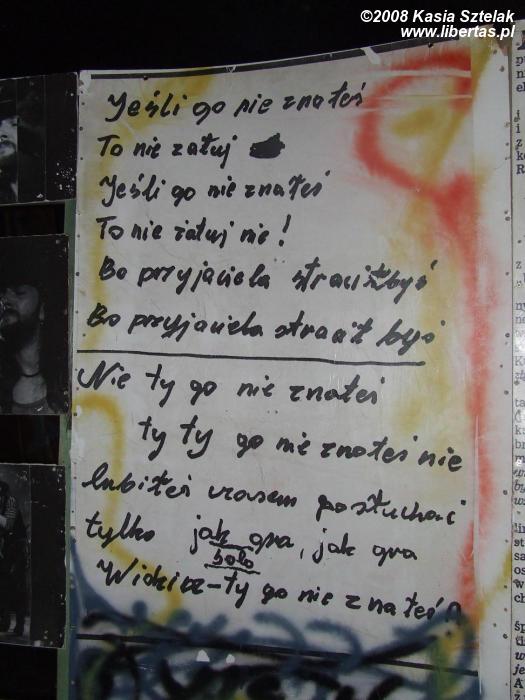 ©2008 Kasia Sztelak
www.libertas.pl
Jeśli go nie znałeś
To nie załuj
Jeśli go nie znałeś
To nie żałuj nie!
Bo przyjaciela straciłbyś
Bo przyjaciela stracił byś
Nie ty go nie znałeś
ty ty go nie znałeś nie
lubiłeś czasem posłuchać
tylko jak gra, jak gra
solo
Widzisz-ty go nie znałeś